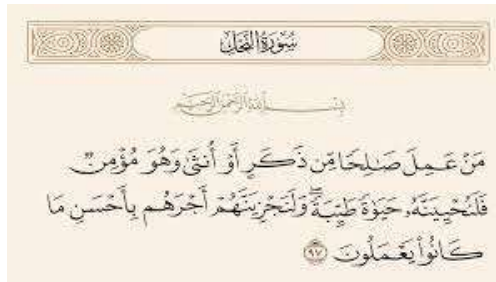 سُورَةُ النَّحْلِ
بِسْمِ اللَّهِ الرَّحْمَٰنِ الرَّحِيمِ
مَنْ عَمِلَ صَٰلِحًا مِّن ذَكَرٍ أَوْ أُنثَىٰ وَهُوَ مُؤْمِنٌ
فَلَنُحْيِيَنَّهُۥ حَيَوٰةً طَيِّبَةً ۖ وَلَنَجْزِيَنَّهُمْ أَجْرَهُم بِأَحْسَنِ مَا
كَانُوا۟ يَعْمَلُونَ ٩٧